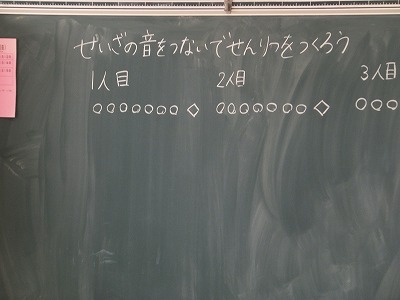 せいざの音をつないでせんりつをつくろう
1人目 2人目 3人目
○○○○○○○◇ ○○○○○○○◇ ○○○